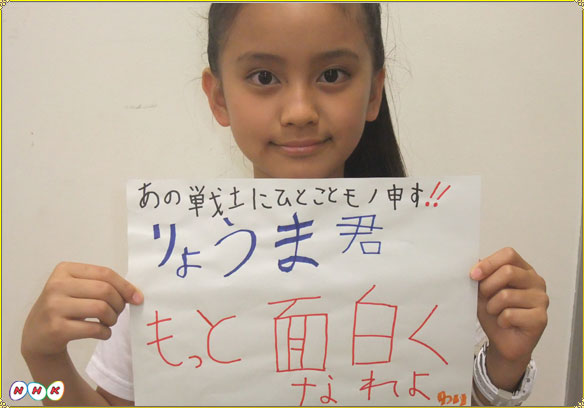 あの戦士にひとことモノ申す!!
りょうま君
もっと面白く
なれよ
NHK